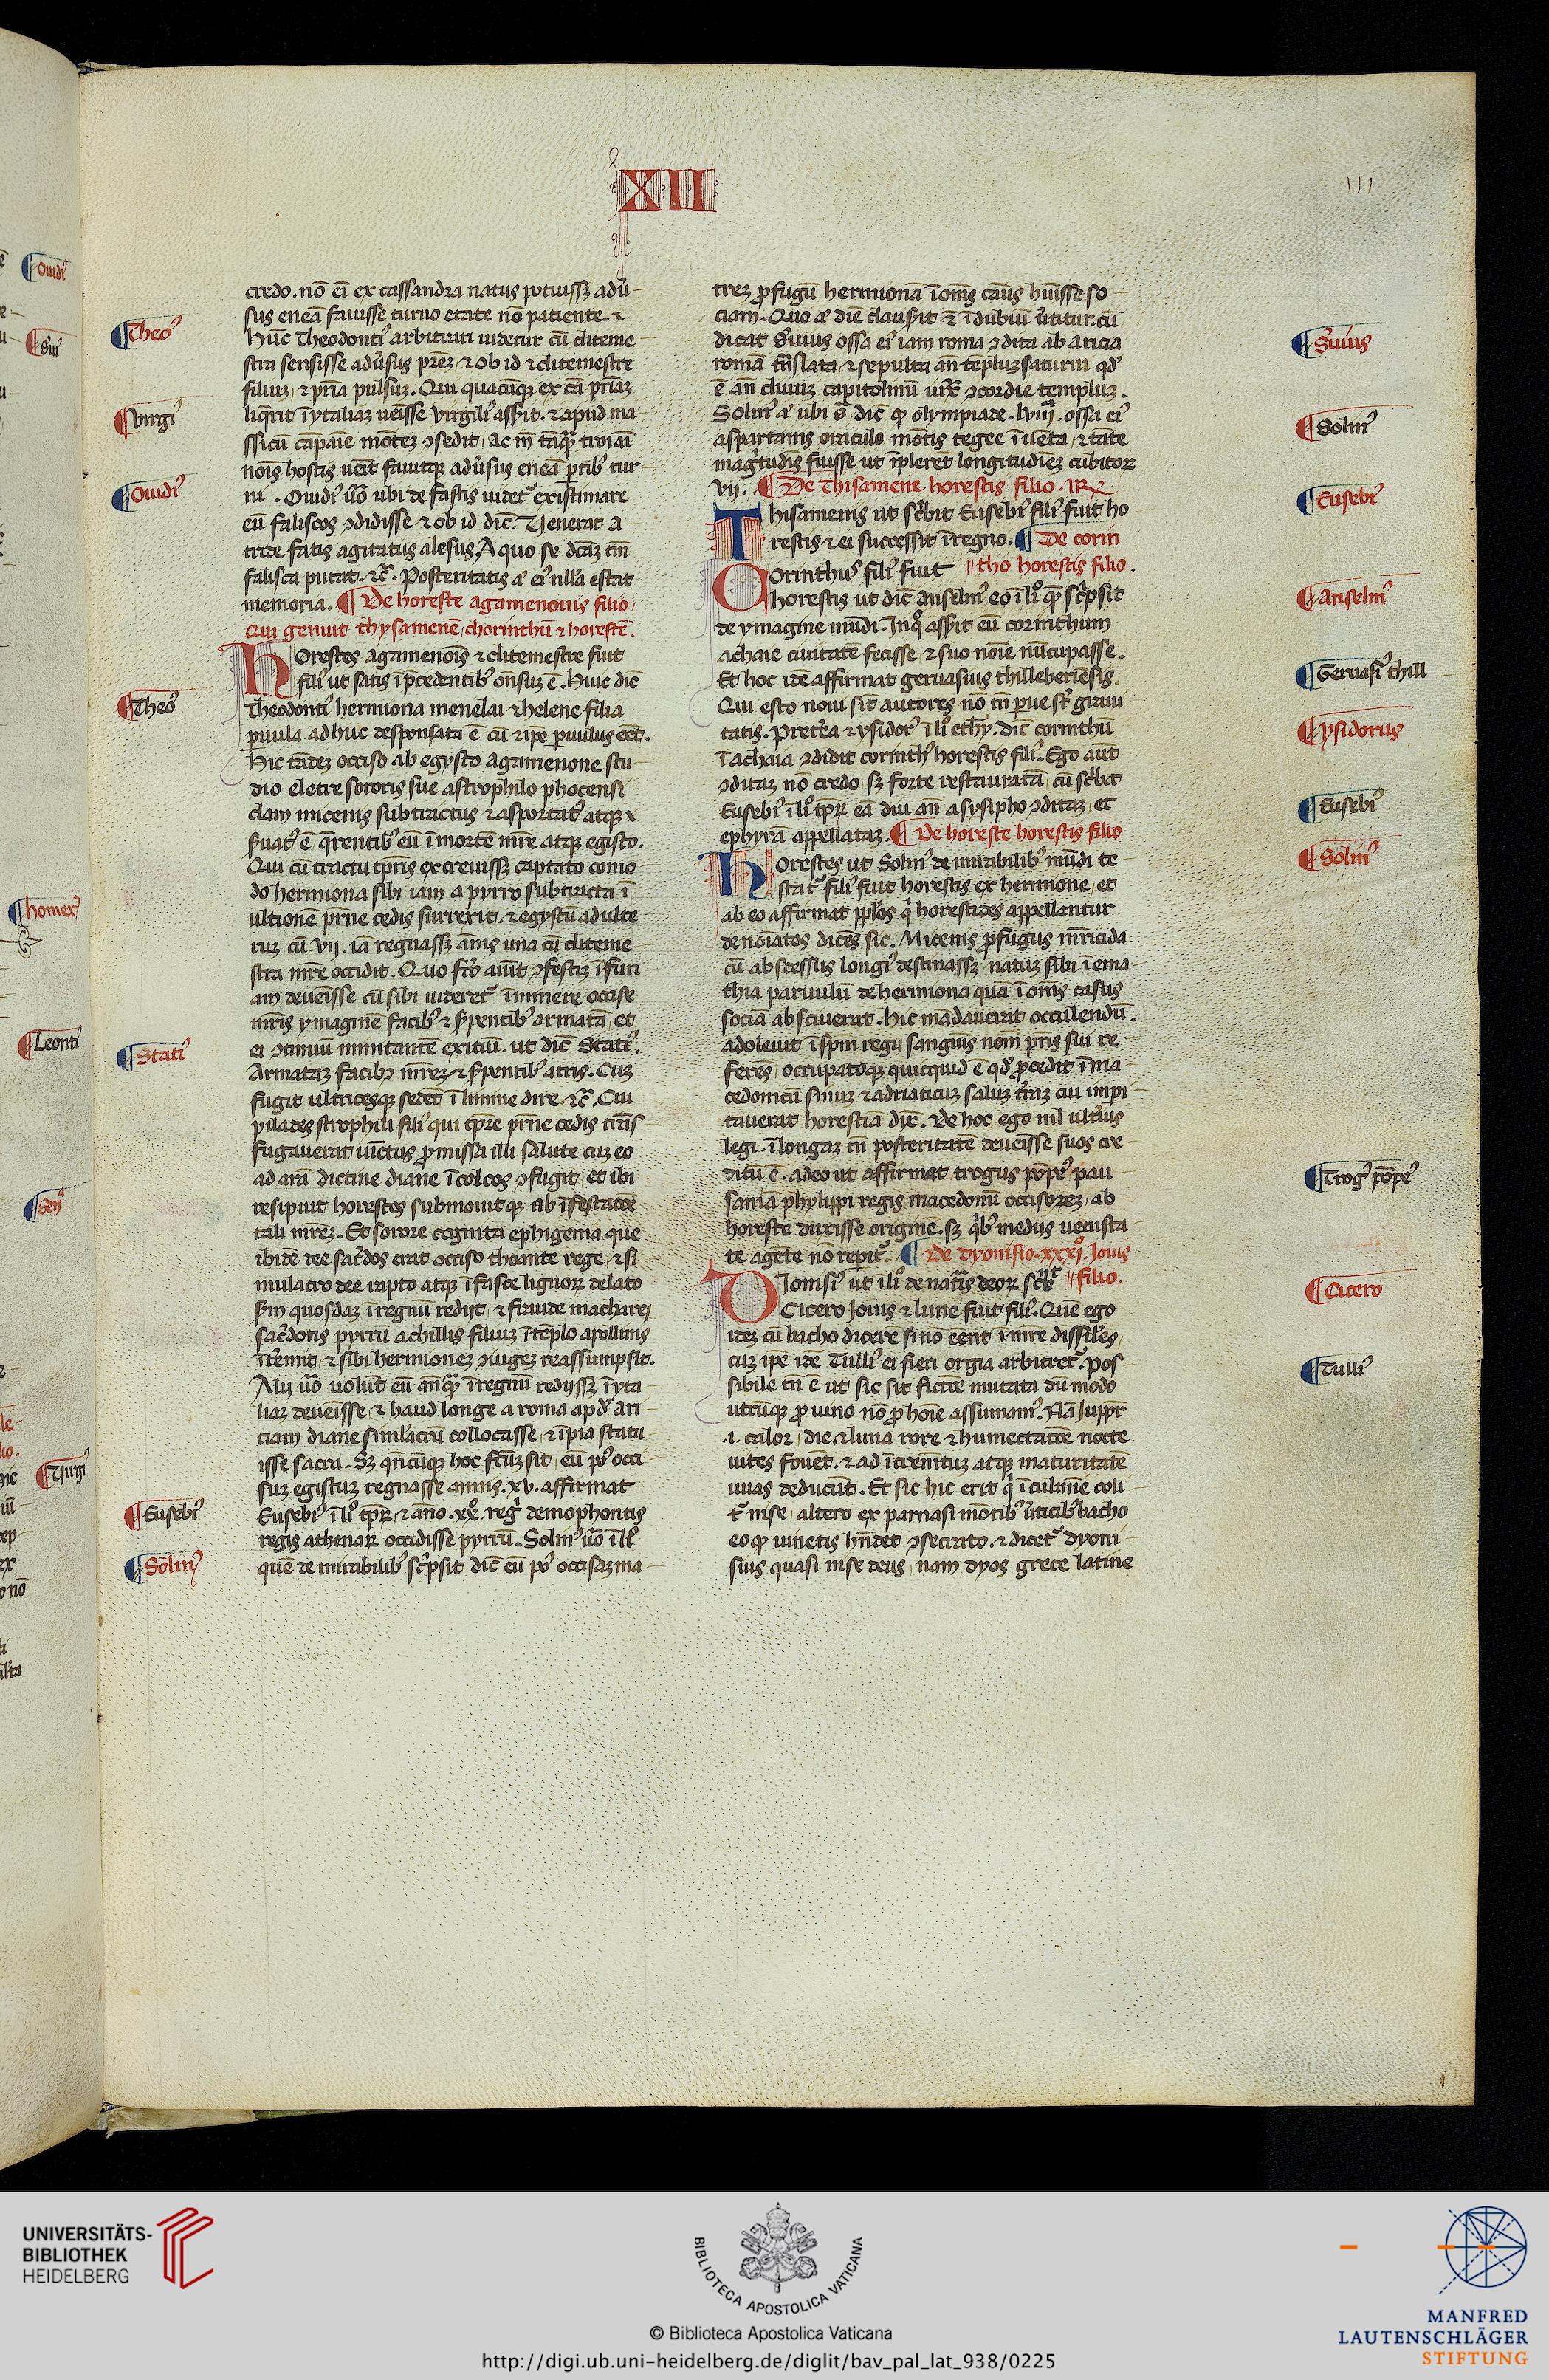 XII
111
credo. nō eī ex cassandra natus potuissꝫ adu᷒
sus eneā fauisse turno etate nō patiente. ⁊
Hūc Theodontiꝰ arbitrari uidetur cū cliteme
stra sensisse aduersus prēꝫ ⁊ ob id ⁊ clitemestre
filiuꝫ ⁊ pr̄ia pulsuꝫ. Qui quacūqꝫ ex cā pr̄iaꝫ
liq̄rit ī ytaliaꝫ ueīsse virgiliꝰ asserit. ⁊ apud ma
ssicū capaīe mōteꝫ ꝯsedit, ac m̄ tāq̄ꝫ troiāi
noīs hostis ueīt fauitqꝫ aduersus eneā ꝑtibꝰ tur
ni. Ouidiꝰ uō ubi de fastis uidetᷣ existimare
eū faliscos ꝯdidisse ⁊ ob id dīc: Venerat a
tride fatis agitatus alesus, A quo se dcāꝫ tm̄
falisca putat. ⁊c̄. Posteritatis āt eiꝰ nlla estat
memoria. ¶ De horeste agamenonis filio
Qui genuit thysamenē, chorinthū ⁊ horestē.
Horestes agamenoīs ⁊ clitemestre fuit
filiꝰ ut satis ī p̄cedentibꝰ on̄suꝫ ē. Huic dīc
Theodontiꝰ hermiona menelai ⁊ helene filia
ꝑuula adhuc desponsata ē cū ⁊ ip̄e ꝑuulus eēt.
Hic tādeꝫ occiso ab egysto agamenone stu
dio eletre sororis sue a strophilo phocensi
clam micenis subtractus ⁊ asportatꝰ atqꝫ ⁊
seruatꝰ ē q̄rentibꝰ eū ī mortē mr̄e atqꝫ egisto.
Qui cū tractu tꝑris excreuissꝫ captato como
do hermiona sibi iam a pyrro subtracta ī
ultionē pr̄ne cedis surrexit, ⁊ egystū adulte
ruꝫ cū .vii. iā regnassꝫ annis una cū cliteme
stra mr̄e occidit. Quo fcō aiūt ꝯfestiꝫ ī furi
am deueīsse cū sibi uideretᷣ īminere occise
mr̄is ymaginē facibꝰ ⁊ serpentibꝰ armatā, et
ei ꝯtinuū minitantē exitiū. ut dīc Statiꝰ.
Armataꝫ facibꝫ mr̄eꝫ ⁊ serpentibꝰ atris. Cuꝫ
fugit ultricesqꝫ sedet ī limine dire ⁊c̄. Cui
pilades strophili filiꝰ qui tꝑre pr̄ne cedis trās
fugauerat uīctus ꝓmissa illi salute cuꝫ eo
ad arā dictine diane ī colcos ꝯfugit, et ibi
resipuit horestes submouitqꝫ ab īfestatōe
tali mr̄eꝫ. Et sorore cognita ephigenia que
ibidē dee sacerdos erat occiso thoante rege, ⁊ si
mulacro dee rapto atqꝫ ī fasce lignoꝝ delato
scd̄m quosdaꝫ ī regnū redijt, ⁊ fraude macharej
sacerdotis pyrrū achillis filiuꝫ ī tēplo apollinis
īteremit, ⁊ sibi hermioneꝫ ꝯiugeꝫ reassumpsit.
Alij uō uolūt eū an̄q̄ꝫ ī regnū redijssꝫ ī yta
liaꝫ deueīsse ⁊ haud longe a roma apd̓ ari
ciam diane simlacrū collocasse, ⁊ īpia statu
isse sacra. Sꝫ qn̄cūqꝫ hoc fcūꝫ sit, eū pꝰ occi
suꝫ egistuꝫ regnasse annis .xv. affirmat
Eusebiꝰ ī liᵒ tꝑꝝ ⁊ āno .xxº. regꝭ demophontis
regis athenaꝝ occidisse pyrrū. Solinꝰ uō ī liᵒ
quē de mirabilibꝰ scripsit dīc eū pꝰ occisaꝫ ma
treꝫ ꝓfugū hermionā ī oīns casus huīsse so
ciam. Quo āt die clauserit ⁊ ī dubiū uertitur. cū
dicat Seruius ossa eiꝰ iam roma ꝯdita ab aricia
romā trāslata, ⁊ sepulta an̄ tēpluꝫ saturni qd̓
ē an̄ cliuuꝫ capitolinū iuxᷓ ꝯcordie templuꝫ.
Solinꝰ āt ubi sᷓ. dīc ꝙ olympiade .lviii. ossa eiꝰ
a spartanis oraculo mōitis tegee īuēta, ⁊ tāte
magᷤtudīs fuisse ut īpleret longitudineꝫ cubitoꝝ
vij. ¶ De Thisamene horestis filio. IR
Thisamenis ut scribit Eusebiꝰ filiꝰ fuit ho
restis ⁊ ei successit ī regno. ¶ De corin
tho horestis filio.
Corinthus filiꝰ fuit
horestis ut dīc anselmꝰ eo ī liᵒ quē scripsit
de ymagine mūdi. In quo asserit eū corinthum
achaie ciuitatē fecisse ⁊ suo noīe nūcupasse.
Et hoc idē affirmat geruasius thilleberiēsis.
Qui esto noui sīt autores nō tn̄ ꝑue st̄ graui
tatis. Preterea ⁊ ysidorꝰ ī liᵒ ethȳ. dīc corinthū
ī achaia ꝯdidit corinthꝰ horestis filiꝰ. Ego aūt
ꝯditaꝫ nō credo sꝫ forte restauratā, cū scribat
Eusebiꝰ ī liᵒ tꝑꝝ eā diu an̄ a sysipho ꝯditaꝫ, et
ephyrā appellataꝫ. ¶ De horeste horestis filio
Horestes ut Solinꝰ de mirabilibꝰ mūdi te
statᷣ filiꝰ fuit horestis ex hermione, et
ab eo affirmat ppl̓os qui horestides appellantur
denoīatos dicēs sic. Micenis ꝓfugus mr̄icida
cū abscessus longiꝰ destinassꝫ natuꝫ sibi ī ema
thia paruulū de hermiona qua ī oīns casus
sociā absciuerat. hic mādauerat occulendū.
adoleuit ī spm̄ regij sanguīs nom̄ pr̄is sui re
ferēs, occupatoqꝫ quicquid ē qd̓ ꝓcedit ī ma
cedonicū sinuꝫ ⁊ adriaticuꝫ saluꝫ terraꝫ cui imꝑi
tauerat horestiā dix̄. De hoc ego nil ulterius
legi. ī longaꝫ tn̄ posteritatē deueīsse suos cre
ditū ē. adeo ut affirmat trogus pōpeꝰ pau
saniā phylippi regis macedonū occisoreꝫ, ab
horeste duxisse originē. sꝫ qᷤbꝰ medijs uetusta
te agēte nō reperitᷣ. ¶ De dyonisio .xxxiº. Jouis
filio.
Dionisiꝰ ut ī liᵒ de naturis deoꝝ scribit
Cicero Jouis ⁊ lune fuit filiꝰ. Quē ego
ideꝫ cū bacho dicerē si nō eēnt ī mr̄e dissiles,
cuꝫ ip̄e idē Tulliꝰ ei fieri orgia arbitretᷣ. Pos
sibile tn̄ ē ut sic sit fictōe mutata dū modo
utrūqꝫ ꝓ uino nō ꝓ hoīe assumamꝰ. Nā Juppr̄
.i. calor, die, ⁊ luna rore ⁊ humectatōe nocte
uites fouēt, ⁊ ad īcremētuꝫ atqꝫ maturitatē
uuas deducūt. Et sic hic erit qui ī culmīe coli
tᷣ nise, altero ex parnasi mōtibꝰ uerticibꝰ bacho
eoqꝫ uinetis hn̄det ꝯsecrato. ⁊ dicetᷣ dyoni
sius quasi nise deus, nam dyos grece latine
¶Theoꝰ
¶Virgiꝰ
¶Ouidiꝰ
¶Theoꝰ
¶Statiꝰ
¶Eusebiꝰ
¶Solinꝰ
¶Seruius
¶Solinꝰ
¶Eusebiꝰ
¶anselmꝰ
¶Geruasiꝰ thill
¶ysidorus
¶Eusebiꝰ
¶Solinꝰ
¶Trogꝰ pōpeꝰ
¶Cicero
¶Tulliꝰ
¶Ouidiꝰ
¶Serui
¶homerꝰ
¶Leontiꝰ
¶Virgi
UNIVERSITÄTS-
BIBLIOTHEK
HEIDELBERG
BIBLIOTECA APOSTOLICA VATICANA
© Biblioteca Apostolica Vaticana
http://digi.ub.uni-heidelberg.de/diglit/bav_pal_lat_938/0225
MANFRED
LAUTENSCHLÄGER
STIFTUNG